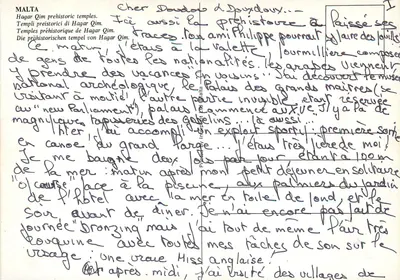 MALTA
Hagar Qim prehistoric temples.
Templi preistorici di Hagar Qim.
Temples préhistorique de Hagar Qim.
Die prehistorischen tempel von Hagar Qim.
Cher Doudou
Ici aussi la préhistoire a laissé ses
traces, ton ami Philippe pourrait y faire des fouilles
Ce matin j'étais à la Valette, fourmillière composée
de gens de toutes les nationalités. les arabes viennent
y prendre des vacances en voisins. J'ai découvert le musée
national archéologique, le Palais des grands maîtres (se
visitant à moitié, l'autre partie invisible étant réservée
au "new Parliament"), palais commencé au XVIe. Il y a là de
magnifiques tapisseries des gobelins... là aussi
hier j'ai accompli un exploit sportif : première sortie
en canoë du grand large... j'étais très fière de moi,
je me baigne deux fois par jour, étant à 100m
de la mer : matin après mon petit déjeuner en solitaire
face à la piscine, aux palmiers du jardin
de l'hôtel avec la mer en toile de fond, et le
soir avant de dîner. Je n'ai encore pas fait de
journée "bronzing" mais j'ai tout de même l'air très
rouquine avec toutes mes tâches de son sur le
visage : une vraie Miss anglaise!
Cet après-midi, j'ai visité des villages de